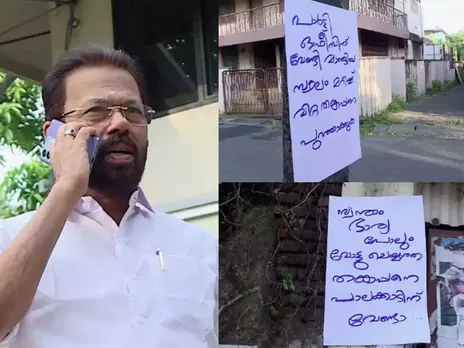 പാർട്ടി
ഓഫീസിന്
വേണ്ടി വാങ്ങിയ
സ്ഥലം മറിച്ച്
വിറ്റ തങ്കപ്പനെ
പുറത്താക്കുക
സ്വന്തം
ഭാര്യ
പോലും
വോട്ടു ചെയ്യാത്ത
തങ്കപ്പനെ
പാലക്കാടിന്
വേണ്ടാ